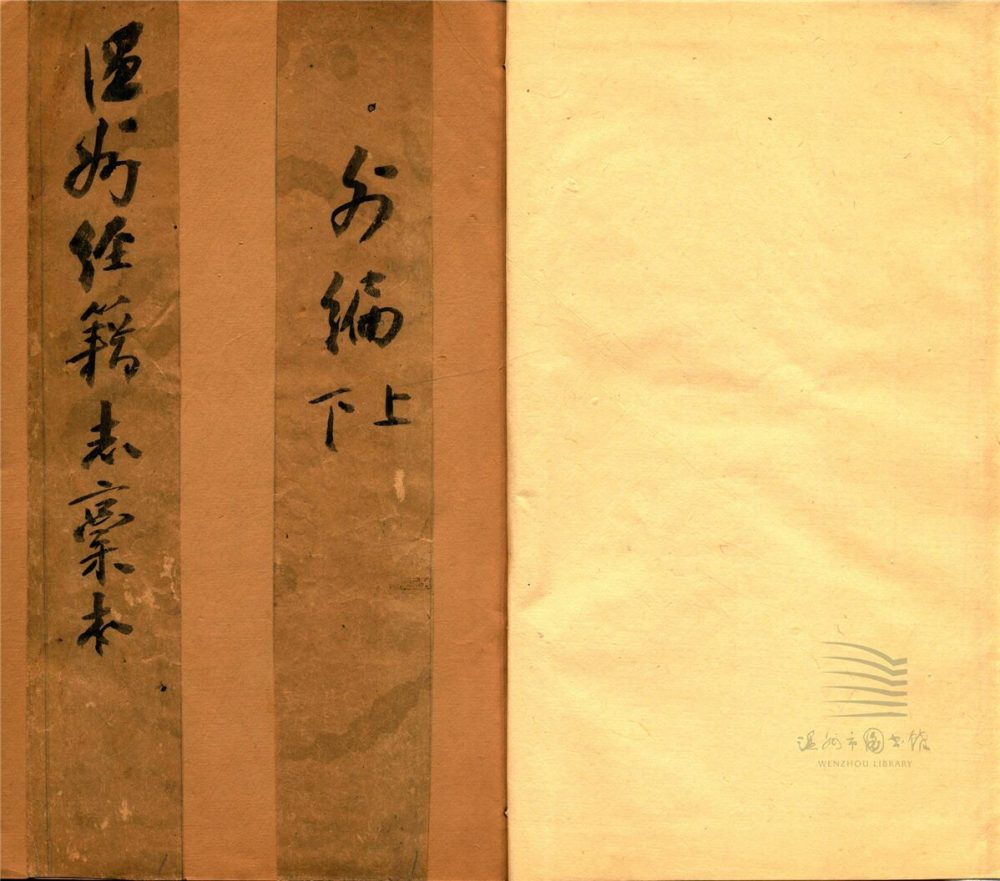 外編上
下
温州經籍志稾本
温州市图书馆
WENZHOU LIBRARY